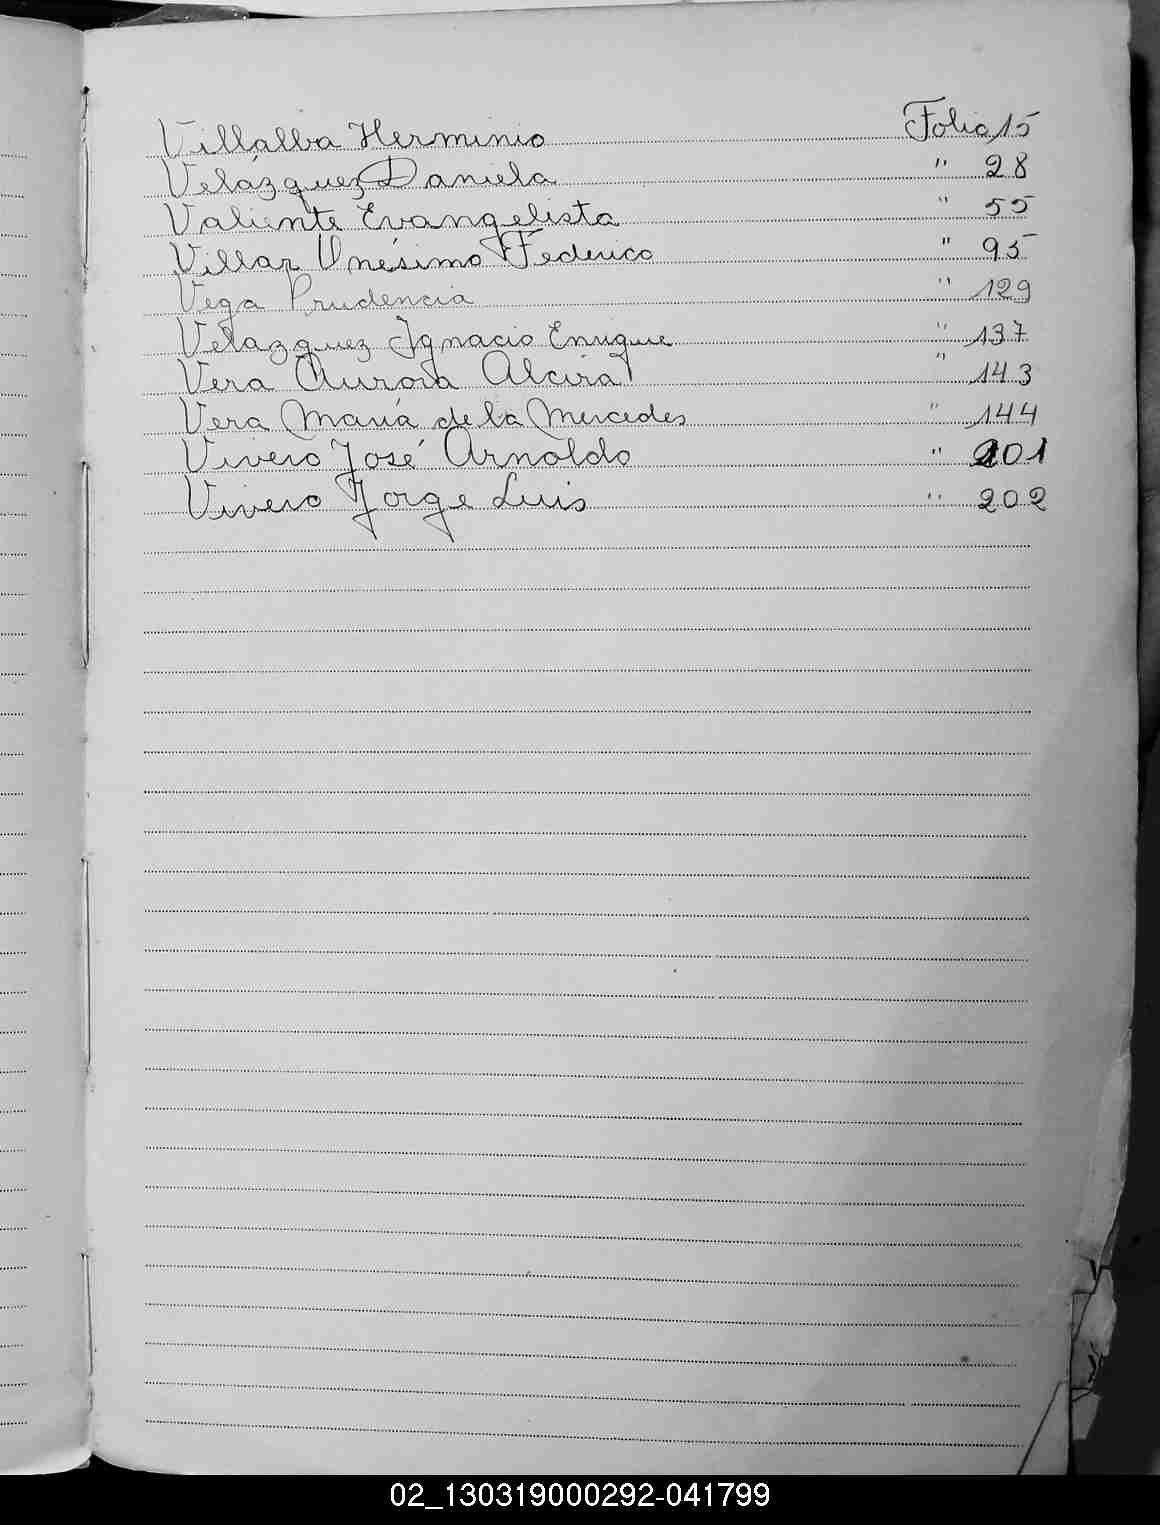 Villalba Herminio Folio 15
Velázquez Daniela " 28
Valiente Evangelista " 55
Villar Onésimo Federico " 95
Vega Prudencia " 129
Velazquez Ignacio Enrique " 137
Vera Aurora Alcira " 143
Vera María de la Mercedes " 144
Vivero José Arnoldo " 201
Vivero Jorge Luis " 202
02_130319000292-041799